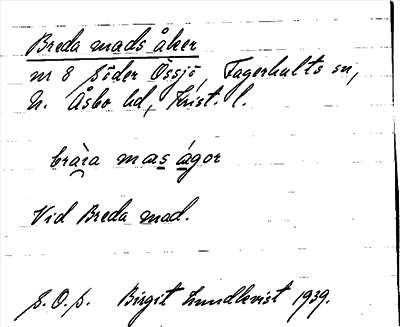 Breda mads åker
nr 8 Söder Össjö, Fagerhults sn,
N. Åsbo hd, Krist. l.
bràra mas ágor
Vid Breda mad.
S.O.p. Birgit Lundkvist 1939.